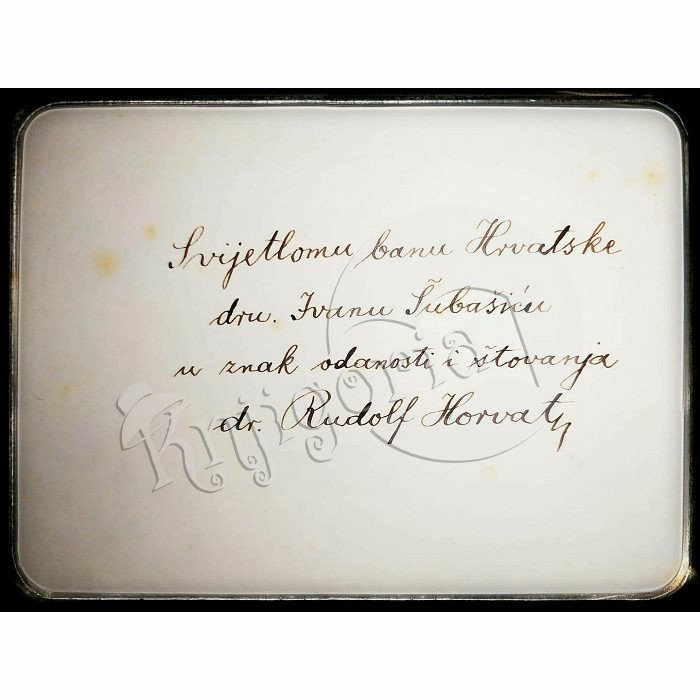 Svijetlomu banu Hrvatske
dru. Ivanu Šubašiću
u znak odanosti i štovanja
dr. Rudolf Horvat
Knjigoria